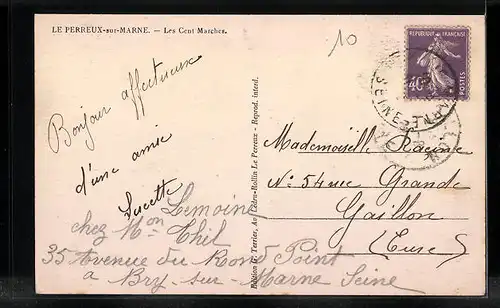 LE PERREUX-sur-MARNE. — Les Cent Marches.
10
REPUBLIQUE FRANÇAISE
40c
POSTES
Bonjour affectueux
d'une amie
Lucette
Lemoine
chez Mon Thil
35 Avenue du Rond Point
a Bry-sur-Marne Seine
Edition G. Terrier, Av. Ledru-Rollin Le Perreux - Reprod. interd.
Mademoiselle Racine
No 54 rue Grande
Gaillon
(Eure)